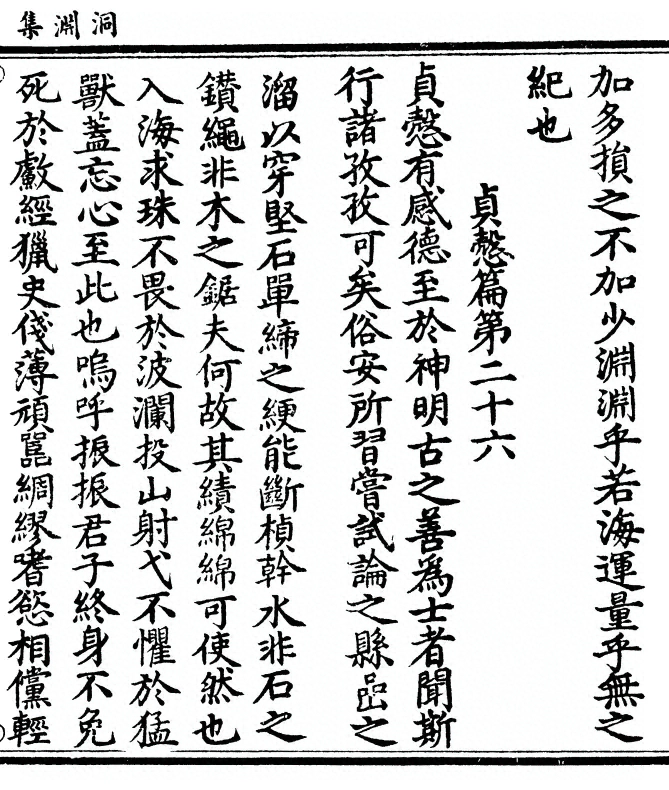 洞淵集
加多損之不加少淵淵乎若海運量乎無之
紀也
貞愨篇第二十六
貞愨有感德至於神明古之善為士者聞斯
行諸孜孜可矣俗安所習嘗試論之縣嵒之
溜以穿堅石單締之綆能斷楨幹水非石之
鑽繩非木之鋸夫何故其績綿綿可使然也
入海求珠不畏於波瀾投山射弋不懼於猛
獸蓋忘心至此也嗚呼振振君子終身不免
死於㱆經獵史伐薄頑嚚綢繆嗜慾相儻輕